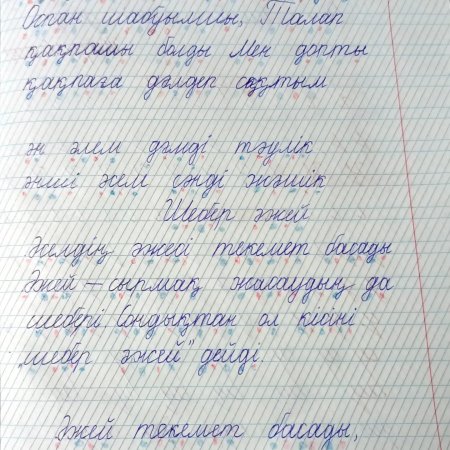 Оспан шабуылшы, Талап
қақпашы болды Мен допты
қақпаға дәлдеп соқтым
ән әлем дәмді тәулік
әнші әсем сәнді әжәшік
Шебер әжей
Әселдің әжесі текемет басады
Әжей – сырмақ жасаудың да
шебері. Сондықтан ол кісіні
„шебер әжей" дейді.
Әжей текемет басады,